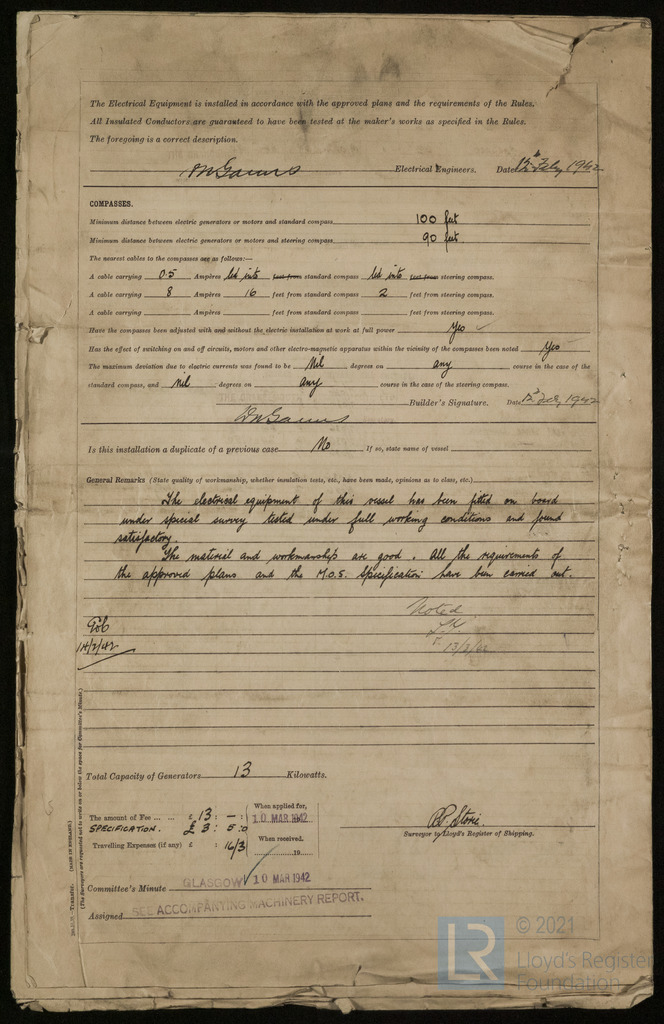 The Electrical Equipment is installed in accordance with the approved plans and the requirements of the Rules.
All Insulated Conductors are guaranteed to have been tested at the maker's works as specified in the Rules.
The foregoing is a correct description.
Electrical Engineers. Date 12th Feby 1942
COMPASSES.
Minimum distance between electric generators or motors and standard compass 100 feet
Minimum distance between electric generators or motors and steering compass 90 feet.
The nearest cables to the compasses are as follows:—
A cable carrying 0.5 Ampères led into feet from standard compass led into feet from steering compass.
A cable carrying 8 Ampères 16 feet from standard compass 2 feet from steering compass.
A cable carrying Ampères feet from standard compass feet from steering compass.
Have the compasses been adjusted with and without the electric installation at work at full power Yes
Has the effect of switching on and off circuits, motors and other electro-magnetic apparatus within the vicinity of the compasses been noted Yes
The maximum deviation due to electric currents was found to be Nil degrees on any course in the case of the
standard compass, and Nil degrees on any course in the case of the steering compass.
Builder's Signature. Date 12th Feby 1942
Is this installation a duplicate of a previous case No If so, state name of vessel
General Remarks (State quality of workmanship, whether insulation tests, etc., have been made, opinions as to class, etc.)
The electrical equipment of this vessel has been fitted on board
under special survey tested under full working conditions and found
satisfactory.
The material and workmanship are good. All the requirements of
the approved plans and the M.O.S. Specification have been carried out.
Noted
13/3/42
14/2/42
Total Capacity of Generators 13 Kilowatts.
The amount of Fee ... ... £ 13 : — :
When applied for,
10 MAR 1942
SPECIFICATION. £ 3 : 5 : 0
Travelling Expenses (if any) £ : 16/3
When received.
19
R.P. Storie.
Surveyor to Lloyd's Register of Shipping.
Committee's Minute GLASGOW 10 MAR 1942
Assigned SEE ACCOMPANYING MACHINERY REPORT.
Transfer. (MADE IN ENGLAND.)
(The Surveyors are requested not to write on or below the space for Committee's Minute.)
LR
© 2021
Lloyd's Register
Foundation